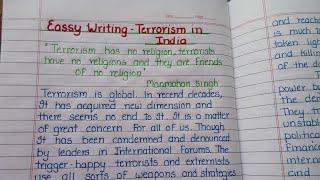 Eassy Writing - Terrorism in
India
"Terrorism has no religion, terrorists
have no religions and they are friends
of no religion"
Manmohan Singh
Terrorism is global. In recent decades,
It has acquired new dimension and
there seems no end to It. It is a matter
of great concern For all of us. Though
It has been condemned and denounced
by leaders in International Forums. The
trigger-happy terrorists and extremists
use all sorts of weapons and strategies
and reache
is much
taken ligh
and killing
of the
power
They
was
unstable
politica
Finance
interna
It is